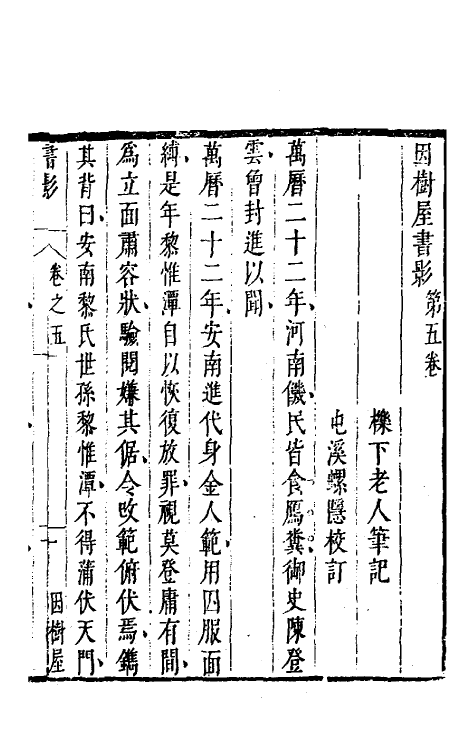 因樹屋書影第五卷
櫟下老人筆記
屯溪螺隱校訂
萬曆二十二年河南饑民皆食鴈糞御史陳登
雲曾封進以聞
萬曆二十二年安南進代身金人範用囚服面
縛是年黎惟潭自以恢復放罪視莫登庸有間
爲立面肅容狀驗閱嫌其倨令改範俯伏焉鐫
其背曰安南黎氏世孫黎惟潭不得蒲伏天門
書影
卷之五
一
因樹屋